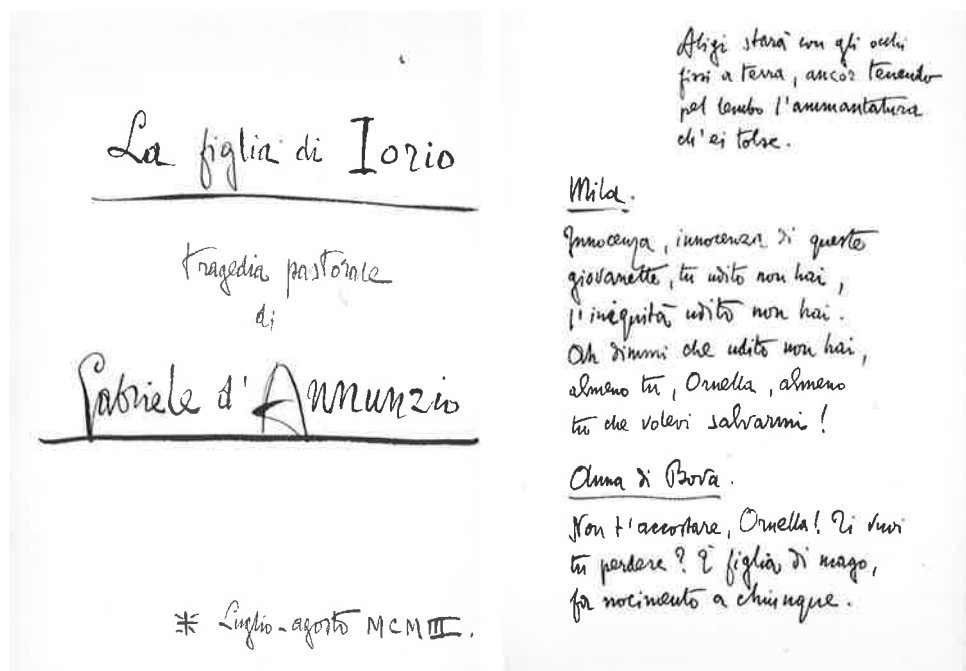 La figlia di Iorio
tragedia pastorale
di
Gabriele d'Annunzio
* Luglio-agosto MCMIII.
Aligi starà con gli occhi
fissi a terra, ancòr tenendo
pel lembo l'ammantatura
ch'ei tolse.
Mila.
Innocenza, innocenza di queste
giovanette, tu udito non hai,
l'iniquità udito non hai.
Ah dimmi che udito non hai,
almeno tu, Ornella, almeno
tu che volevi salvarmi!
Anna di Bova.
Non t'accostare, Ornella! Ti vuoi
tu perdere? È figlia di mago,
fa nocimento a chiunque.